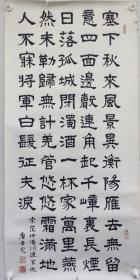 塞下秋來風景異衡陽雁去無留
意四面邊聲連角起千嶂裏長煙
日落孤城閉濁酒一杯家萬里燕
然未勒歸無計羌管悠悠霜滿地
人不寐將軍白髮征夫淚
宋范仲淹